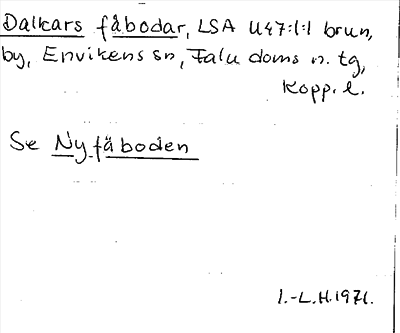 Dalkars fäbodar, LSA U47:1:1 brun,
by, Envikens sn, Falu doms n. tg,
Kopp. l.
Se Ny-fäboden
I.-L.H.1971.